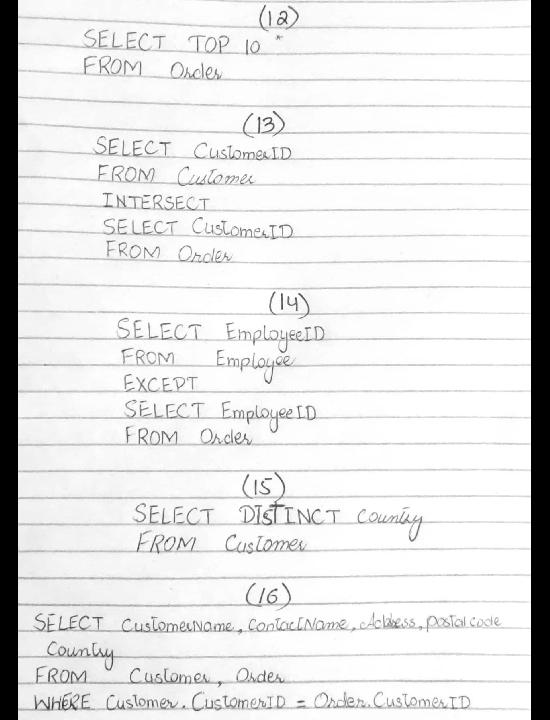 (12)
SELECT TOP 10 *
FROM Order
(13)
SELECT CustomerID
FROM Customer
INTERSECT
SELECT CustomerID
FROM Order
(14)
SELECT EmployeeID
FROM Employee
EXCEPT
SELECT EmployeeID
FROM Order
(15)
SELECT DISTINCT Country
FROM Customer
(16)
SELECT CustomerName, ContactName, Address, postal code
Country
FROM Customer, Order
WHERE Customer.CustomerID = Order.CustomerID